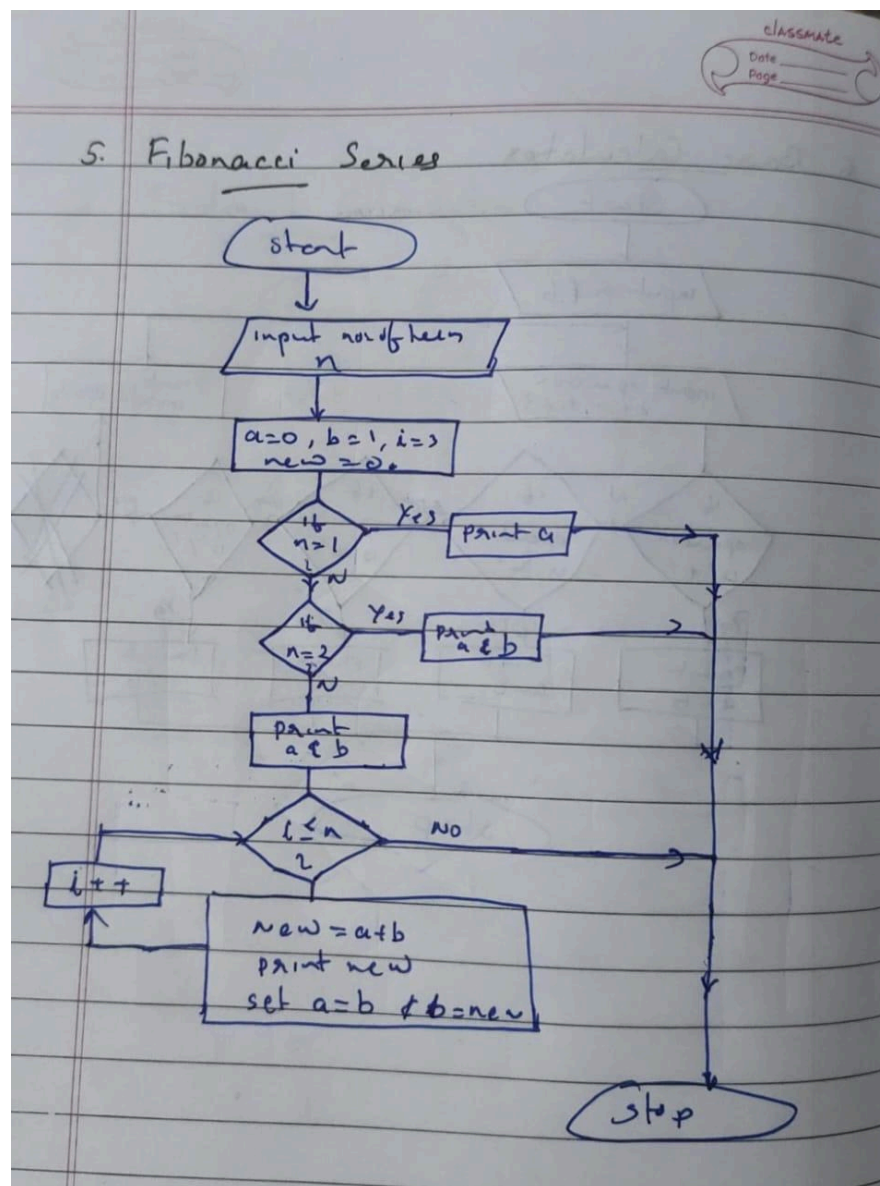 classmate
Date
Page
5. Fibonacci Series
start
input no. of
n
a=0, b=1, i=3
new=0.
if
n=1
Yes
print a
N
if
n=2
Yes
print
a & b
N
print
a & b
i ≤ n
NO
i++
New = a+b
print new
set a=b & b=new
stop